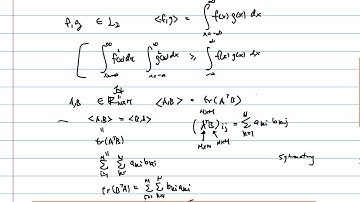 f, g ∈ L₂ <f,g> = ∫_{x=-∞}^{∞} f(x) g(x) dx
[ ∫_{x=-∞}^{∞} f²(x) dx ∫_{x=-∞}^{∞} g²(x) dx ≥ ∫_{-∞}^{∞} f(x) g(x) dx
A,B ∈ ℝ^{N×M} <A,B> = tr(AᵀB)
<A,B> = <B,A> (AᵀB)ij = Σ_{k=1}^{N} aki bkj
tr(AᵀB) M×N N×M
Σ_{i=1}^{M} Σ_{k=1}^{N} aki bki symmetry
tr(BᵀA) = Σ_{i=1}^{M} Σ_{k=1}^{N} bki aki